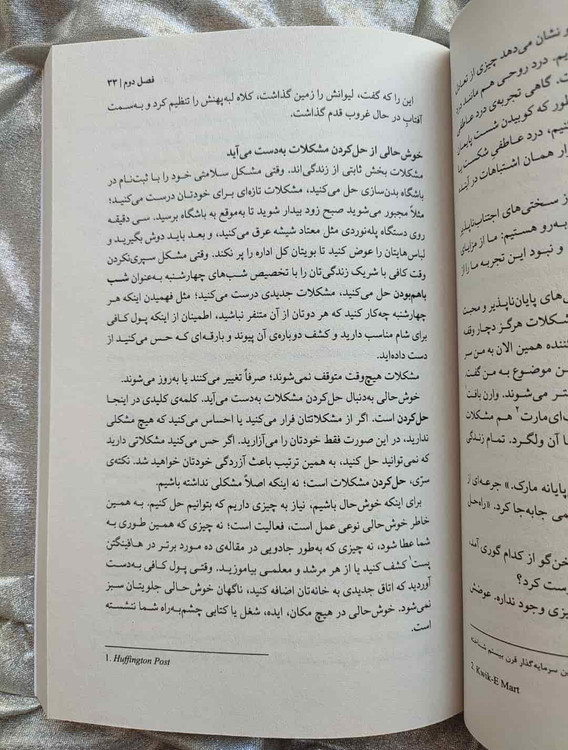 و نشان می‌دهد چیزی از تعادل
یم. درد روحی هم مانند درد
ت. گاهی تجربه‌ی درد عاطفی
طور که کوبیدن شست پایمان
نیم، درد عاطفیِ شکست یا
رار همان اشتباهات در آینده
ز سختی‌های اجتناب‌ناپذیر
به‌رو هستیم: ما از مزایای
و نبود این تجربه ما را از
ی‌های پایان‌ناپذیر و محبت
شکلات هرگز دچار وقفه
ننده همین الان به من سر
ن موضوع به من گفت
تر می‌شوند. وارن بافت۱
ای‌مارت۲ هم مشکلات
آن ولگرد. تمام زندگی
پایانه مارک.» جرعه‌ای از
می جابه‌جا کرد. «راه‌حل
خن‌گو از کدام گوری آمد،
رست کرد؟
یزی وجود نداره. عوضش
ن سرمایه‌گذار قرن بیستم شناخته
2. Kwik-E Mart
فصل دوم | ۳۳
این را که گفت، لیوانش را زمین گذاشت، کلاه لبه‌پهنش را تنظیم کرد و به‌سمت
آفتابِ در حال غروب قدم گذاشت.
خوش‌حالی از حل‌کردن مشکلات به‌دست می‌آید
مشکلات بخش ثابتی از زندگی‌اند. وقتی مشکل سلامتی خود را با ثبت‌نام در
باشگاه بدن‌سازی حل می‌کنید، مشکلات تازه‌ای برای خودتان درست می‌کنید؛
مثلاً مجبور می‌شوید صبح زود بیدار شوید تا به‌موقع به باشگاه برسید. سی دقیقه
روی دستگاه پله‌نوردی مثل معتاد شیشه عرق می‌کنید، و بعد باید دوش بگیرید و
لباس‌هایتان را عوض کنید تا بویتان کل اداره را پر نکند. وقتی مشکل سپری‌نکردن
وقت کافی با شریک زندگی‌تان را با تخصیص شب‌های چهارشنبه به‌عنوان شب
باهم‌بودن حل می‌کنید، مشکلات جدیدی درست می‌کنید؛ مثل فهمیدن اینکه هر
چهارشنبه چه‌کار کنید که هر دوتان از آن متنفر نباشید، اطمینان از اینکه پول کافی
برای شام مناسب دارید و کشف دوباره‌ی آن پیوند و بارقه‌ای که حس می‌کنید از
دست داده‌اید.
مشکلات هیچ‌وقت متوقف نمی‌شوند؛ صرفاً تغییر می‌کنند یا به‌روز می‌شوند.
خوش‌حالی به‌دنبال حل‌کردن مشکلات به‌دست می‌آید. کلمه‌ی کلیدی در اینجا
حل‌کردن است. اگر از مشکلاتتان فرار می‌کنید یا احساس می‌کنید که هیچ مشکلی
ندارید، در این صورت فقط خودتان را می‌آزارید. اگر حس می‌کنید مشکلاتی دارید
که نمی‌توانید حل کنید، به همین ترتیب باعث آزردگی خودتان خواهید شد. نکته‌ی
سرّی، حل‌کردن مشکلات است؛ نه اینکه اصلاً مشکلی نداشته باشیم.
برای اینکه خوش‌حال باشیم، نیاز به چیزی داریم که بتوانیم حل کنیم. به همین
خاطر خوش‌حالی نوعی عمل است، فعالیت است؛ نه چیزی که همین طوری به
شما عطا شود، نه چیزی که به‌طور جادویی در مقاله‌ی ده مورد برتر در هافینگتن
پست۱ کشف کنید یا از هر مرشد و معلمی بیاموزید. وقتی پول کافی به‌دست
آوردید که اتاق جدیدی به خانه‌تان اضافه کنید، ناگهان خوش‌حالی جلویتان سبز
نمی‌شود. خوش‌حالی در هیچ مکان، ایده، شغل یا کتابی چشم‌به‌راه شما ننشسته
است.
1. Huffington Post